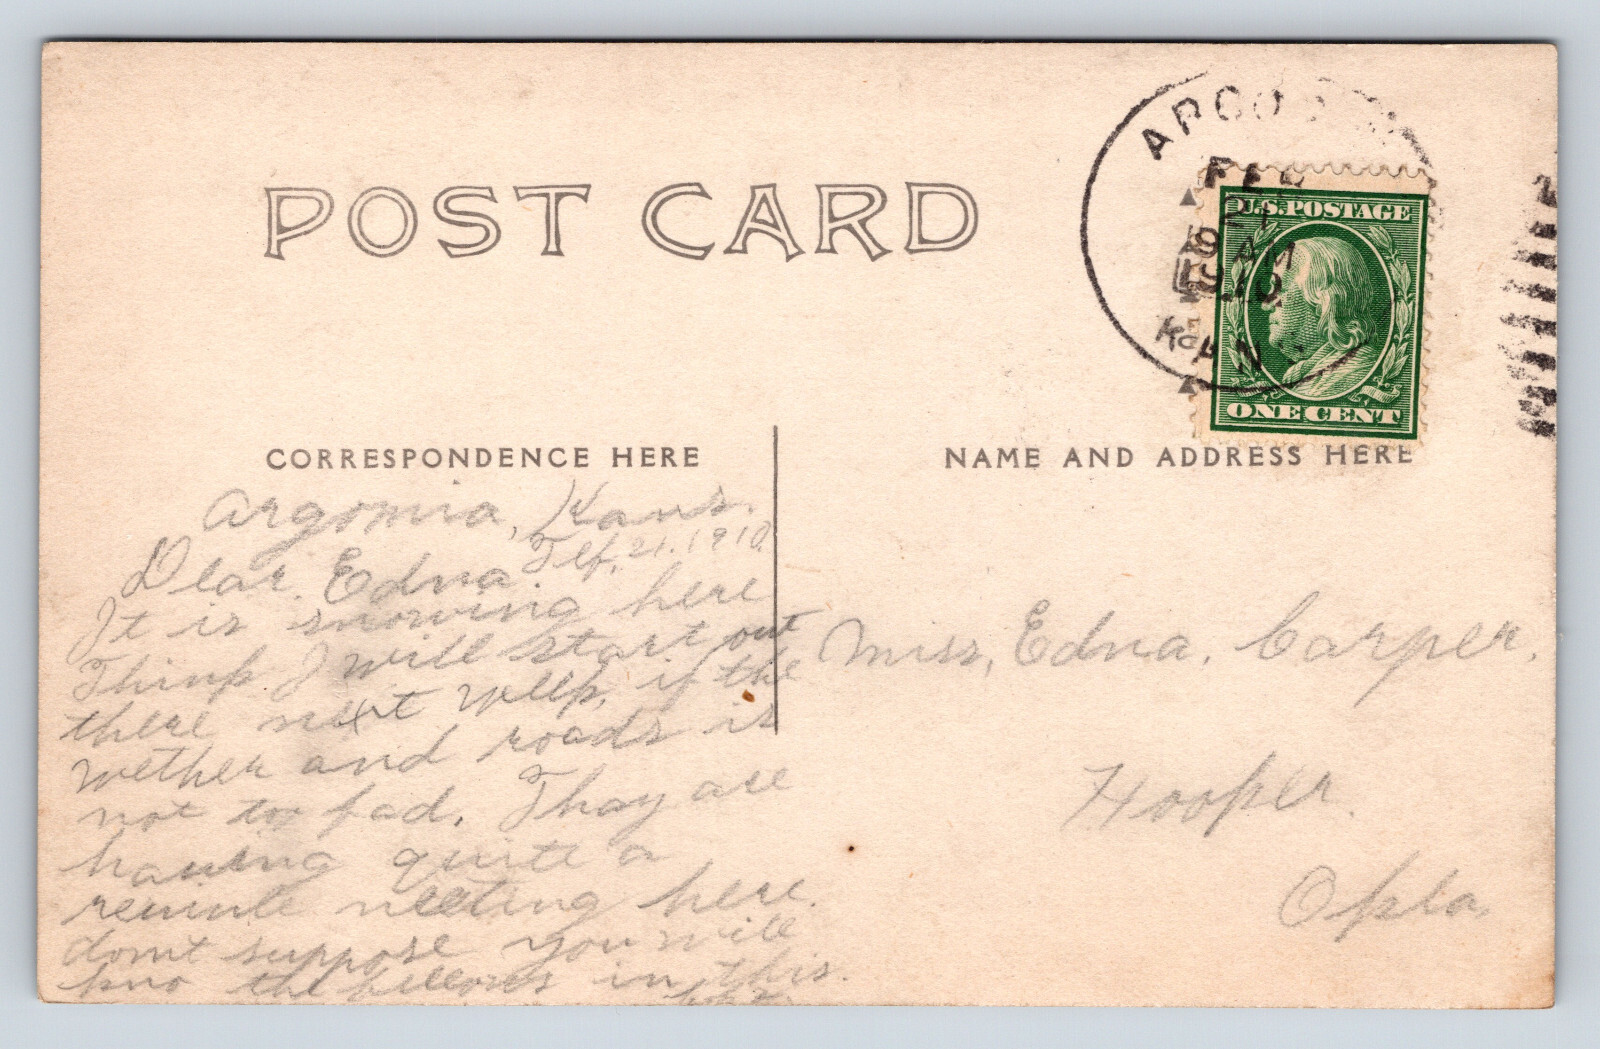 POST CARD
ARGO
FEB
21
9 AM
1910
KAN
U.S. POSTAGE
ONE CENT
CORRESPONDENCE HERE
NAME AND ADDRESS HERE
Argonia, Kans.
Feb. 21. 1910.
Dear Edna.
It is snowing here
Think I will start out
there next week, if the
wether and roads is
not too bad. Thay are
having quite a
meeting here.
dont suppose you will
kno the fellows in this.
Miss, Edna. Carper.
Hooker.
Okla,